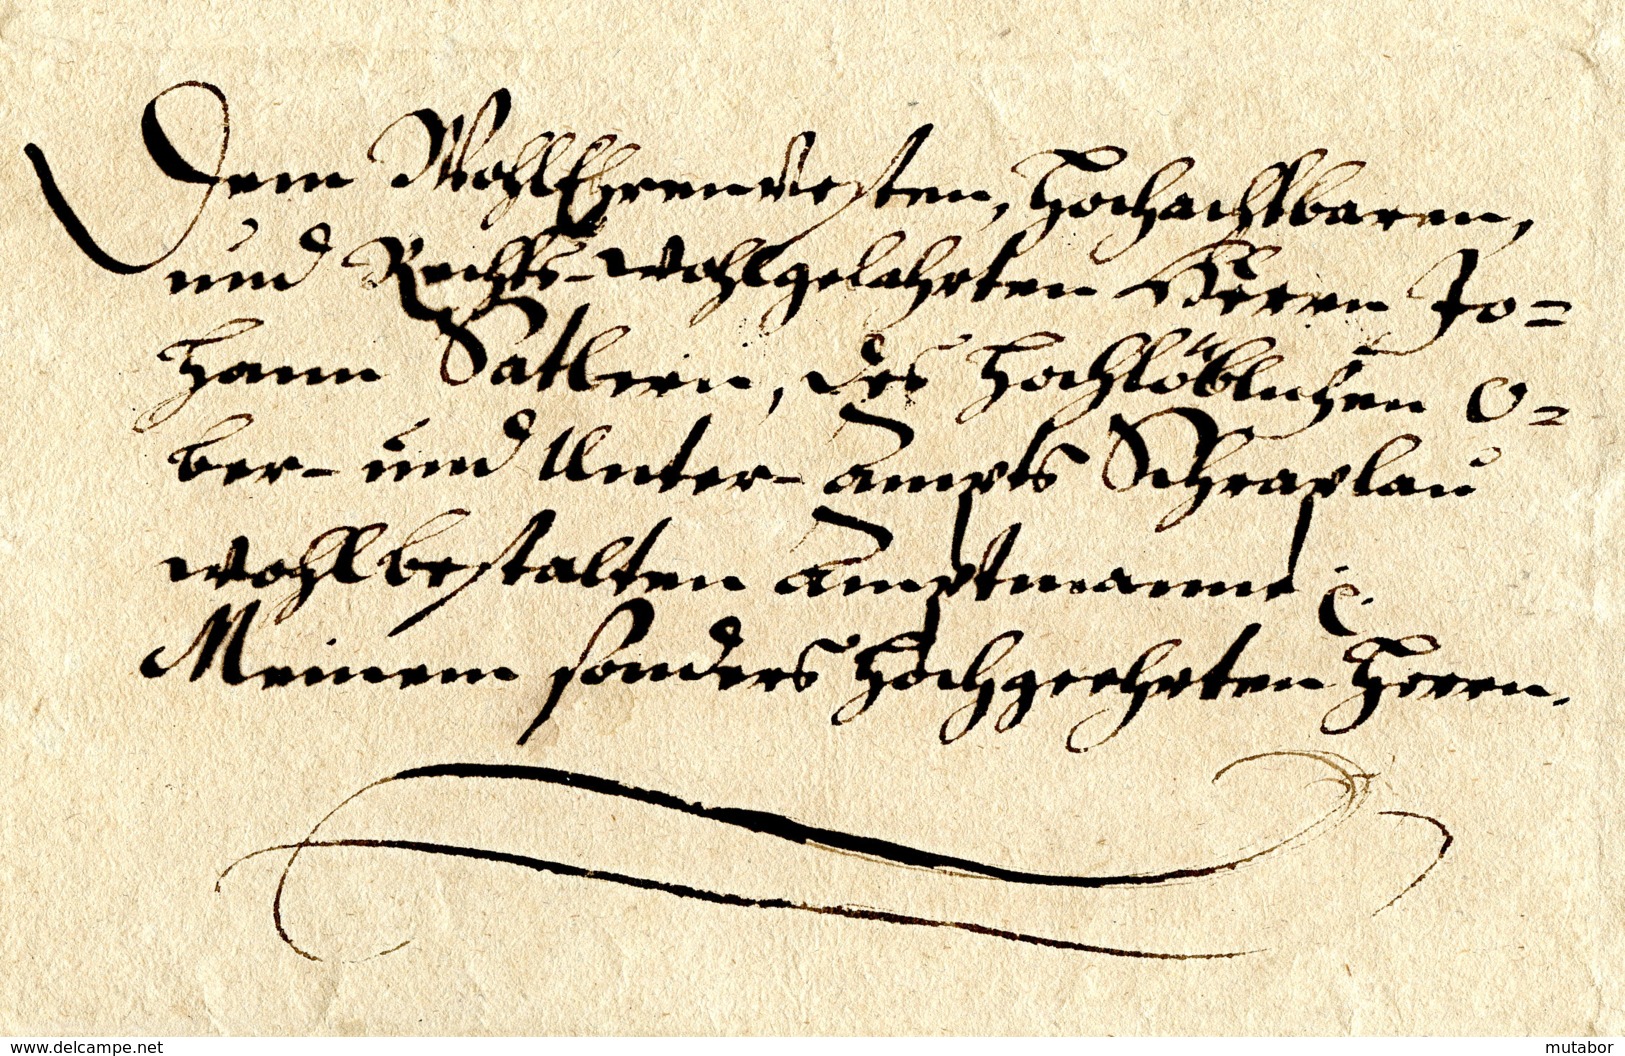 Dem WohlEhrenvesten, Hochachtbaren,
und Rechts-wohlgelahrten Herrn Jo=
hann Satlern, des Hochlöblichen O=
ber- und Unter- Ampts Schraplau
wohlbestalten Amptmanne ꝛc.
Meinem sonders Hochgeehrten Herrn.
www.delcampe.net
mutabor